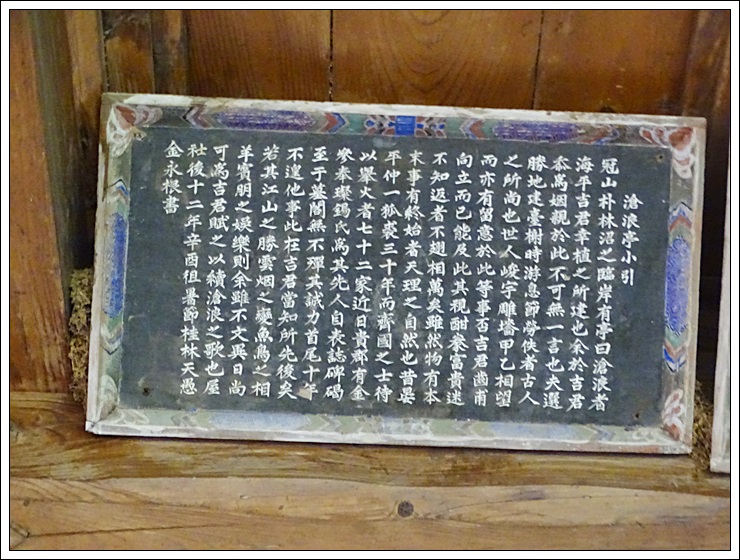 滄浪亭小引
冠山朴林沼之臨岸有亭曰滄浪者
海平吉君幸植之所建也余於吉君
忝爲姻親於此不可無一言也夫選
勝地建臺榭時游息節勞佚者古人
之所尚也世人峻宇雕墻甲乙相望
而亦有留意於此等事否吉君齒甫
向立而已能及此其視酣豢富貴迷
不知返者不翅相萬矣雖然物有本
末事有終始者天理之自然也昔晏
平仲一狐裘三十年而齊國之士待
以擧火者七十二家近日貴郡有金
參奉璨錫氏爲其先人自表誌碑碣
至于墓閣無不殫其誠力首尾十年
不遑他事此在吉君當知所先後矣
若其江山之勝雲烟之變魚鳥之相
羊賓朋之娛樂則余雖不文異日尚
可爲吉君賦之以續滄浪之歌也屋
社後十二年辛酉徂暑節桂林天愚
金永根書